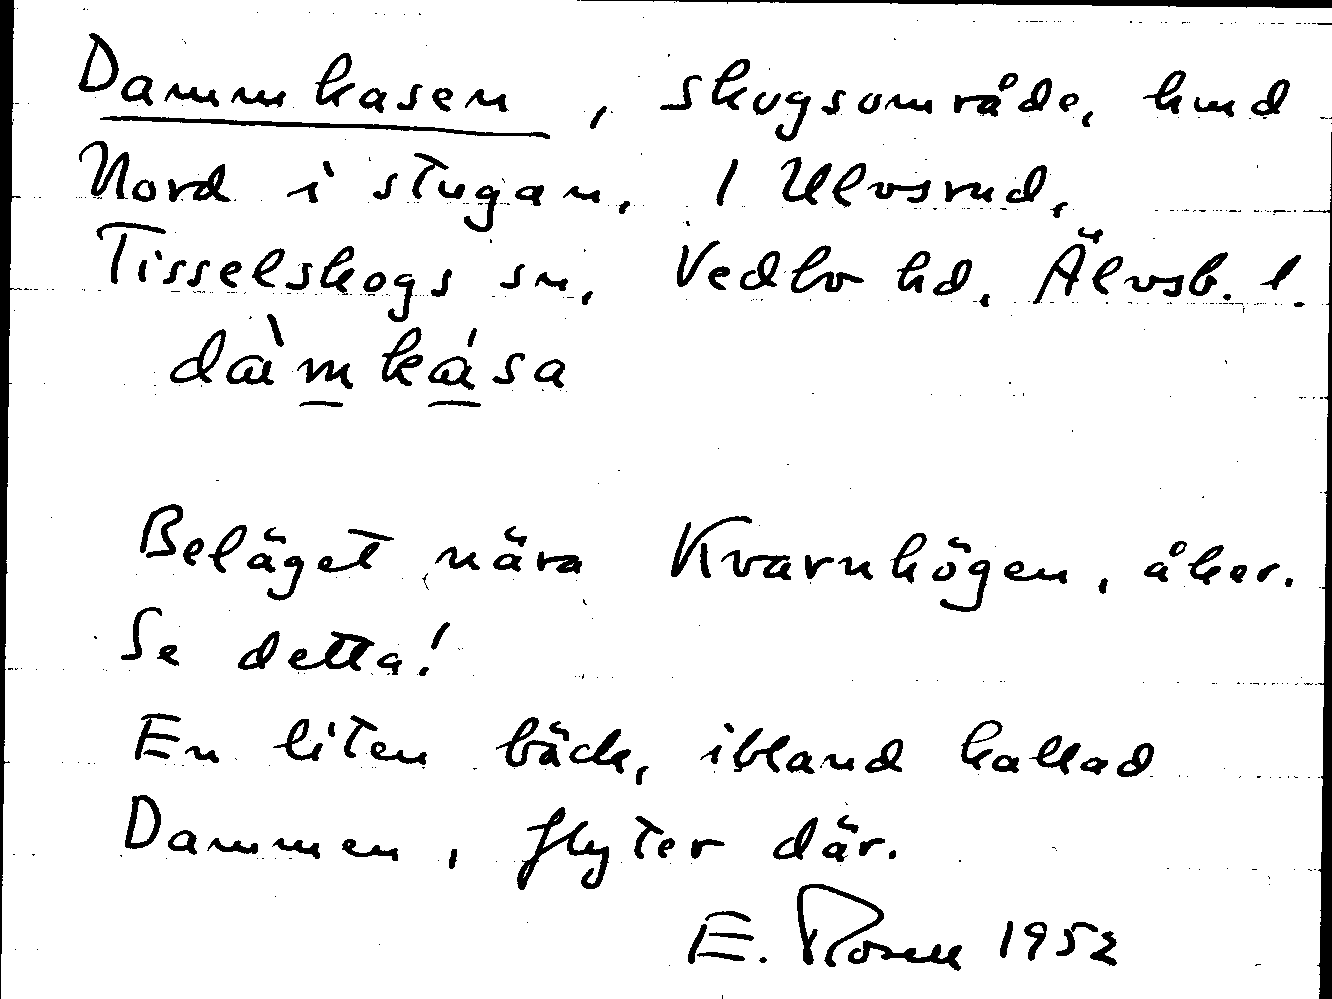 Dammkasen, skogsområde, hmd
Nord i stugan, 1 Ulvsrud,
Tisselskogs sn, Vedbo hd, Älvsb. l.
dàmkása
Beläget nära Kvarnhögen, åker.
Se detta!
En liten bäck, ibland kallad
Dammen, flyter där.
E. Rosell 1952